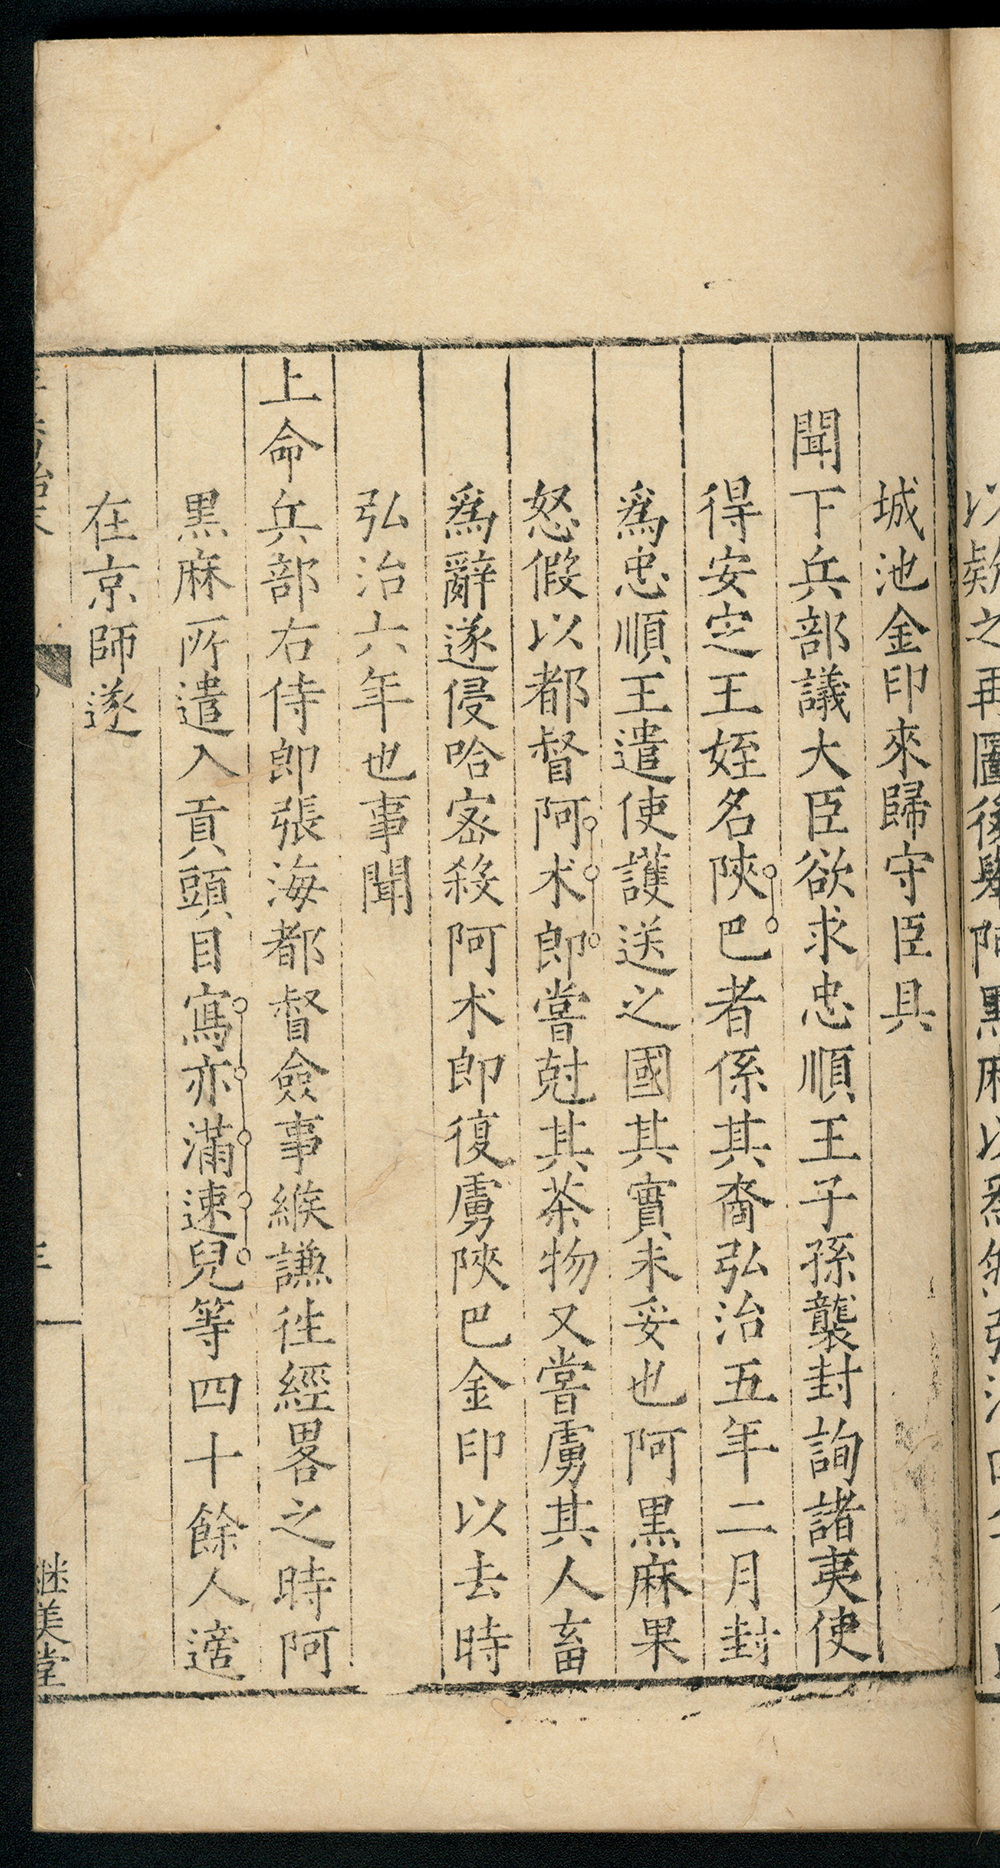 城池金印來歸守臣具
聞下兵部議大臣欲求忠順王子孫襲封詢諸夷使
得安定王姪名陝巴者係其裔弘治五年二月封
爲忠順王遣使護送之國其實未妥也阿黑麻果
怒假以都督阿朮郎嘗尅其茶物又嘗虜其人畜
爲辭遂侵哈密殺阿朮郎復虜陝巴金印以去時
弘治六年也事聞
上命兵部右侍郎張海都督僉事緱謙往經畧之時阿
黑麻所遣入貢頭目寫亦滿速兒等四十餘人適
在京師遂
继美堂